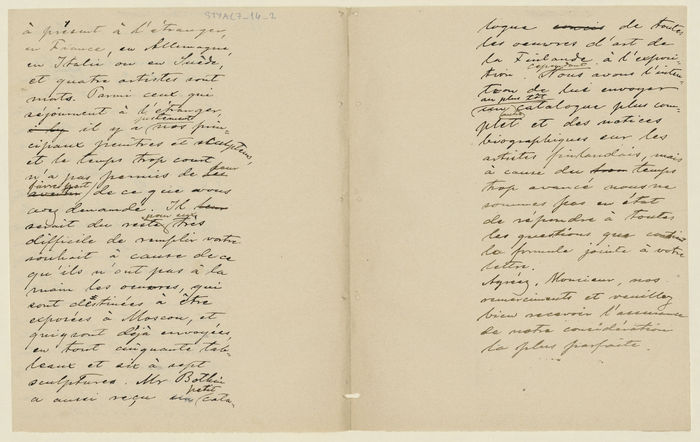 STYAL7_14_2
à présent à l'étranger,
en France, en Allemagne,
en Italie ou en Suède,
et quatre artistes sont
morts. Parmi ceux qui
séjournent à l'étranger,
il y a justement nos prin-
cipaux peintres et sculpteurs,
et le temps trop court
n'a pas permis de
faire part de ce que vous
avez demandé. Il
serait du reste pour eux très
difficile de remplir votre
souhait à cause de ce
qu'ils n'ont pas à la
main les oeuvres, qui
sont destinées à être
exposées à Moscou, et
qui sont déjà envoyées,
en tout cinquante tab-
leaux et six à sept
sculptures. Mr Botkin
a aussi reçu un petit cata-
logue de toutes
les oeuvres d'art de
la Finlande à l'exposi-
tion. Cependant Nous avons l'inten-
tion de lui envoyer
au plus tôt
un autre catalogue plus com-
plet et des notices
biographiques sur les
artistes finlandais, mais
à cause du temps
trop avancé nous ne
sommes pas en état
de répondre à toutes
les questions que contient
la formule jointe à votre
lettre.
Agréez, Monsieur, nos
remerciments et veuillez
bien recevoir l'assurance
de notre considération
la plus parfaite.